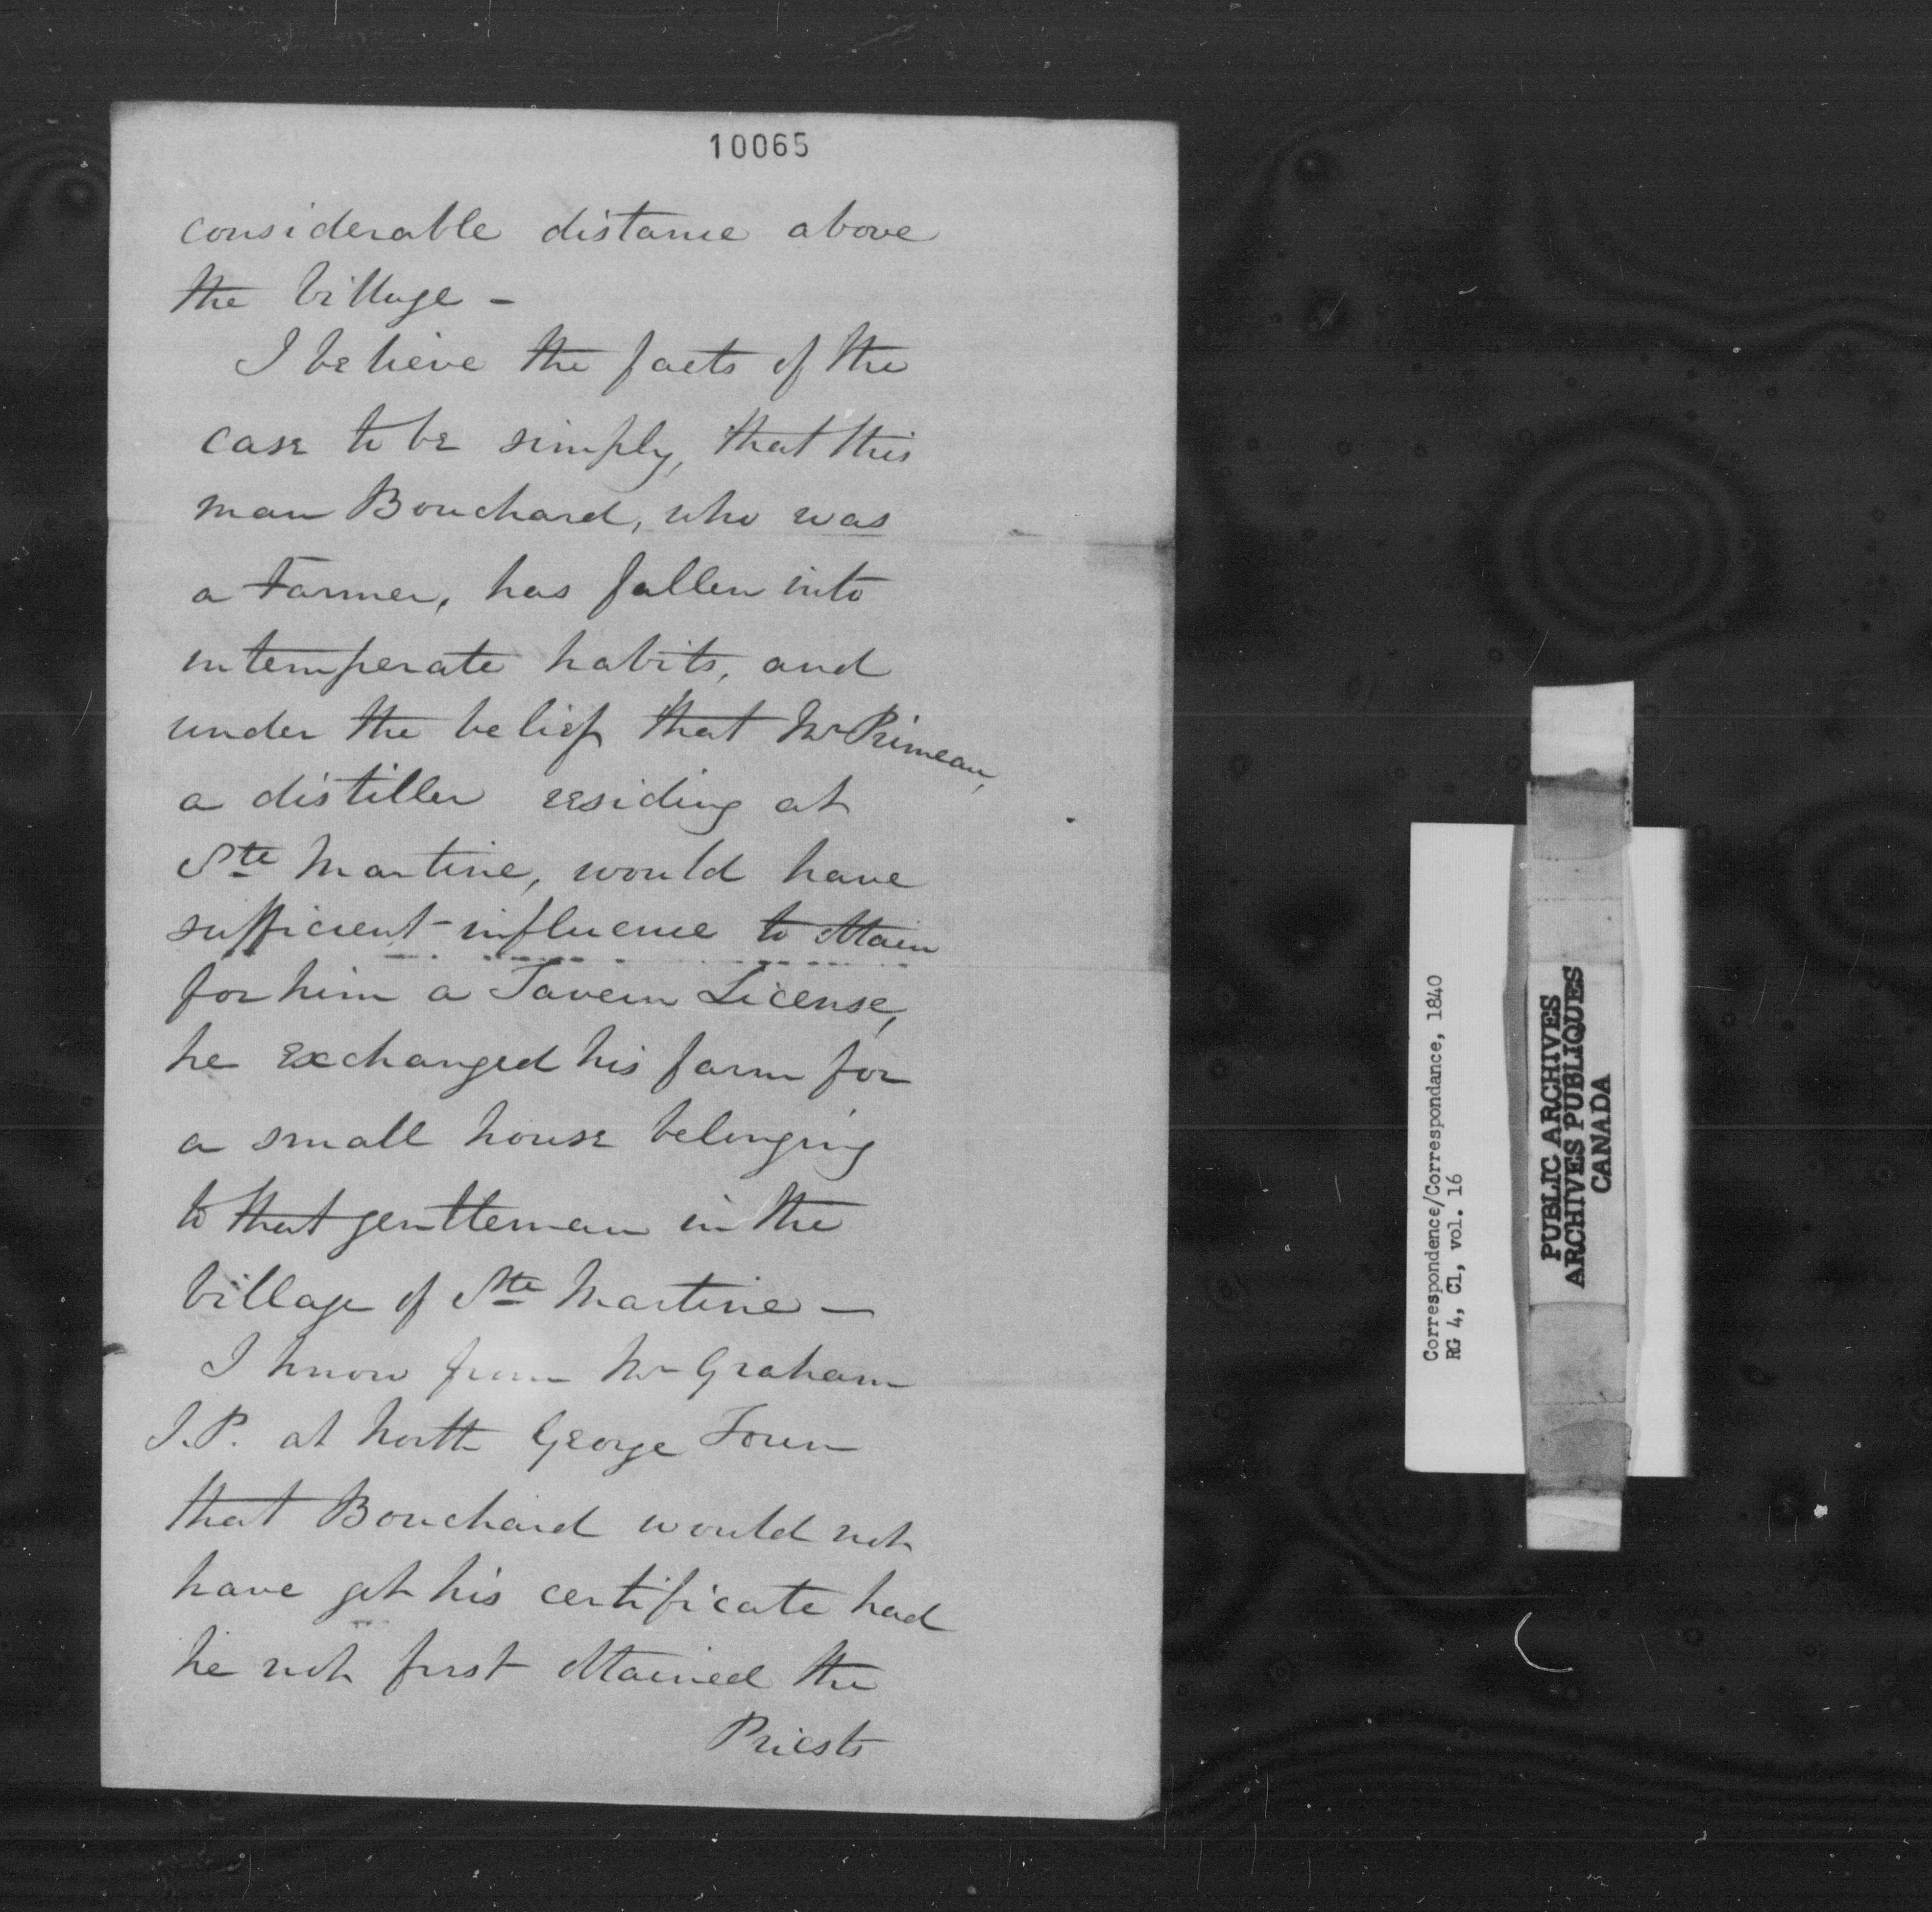 10065
considerable distance above
the Village -
I believe the facts of the
case to be simply, that this
man Bouchard, who was
a Farmer, has fallen into
intemperate habits, and
under the belief that Mr Primeau,
a distiller residing at
Ste Martine, would have
sufficient influence to obtain
for him a Tavern License,
he exchanged his farm for
a small house belonging
to that gentleman in the
Village of Ste Martine —
I know from Mr Graham
J.P. at North George Town
that Bouchard would not
have got his certificate had
he not first obtained the
Priests
Correspondence/Correspondance, 1840
RG 4, C1, vol. 16
PUBLIC ARCHIVES
ARCHIVES PUBLIQUES
CANADA